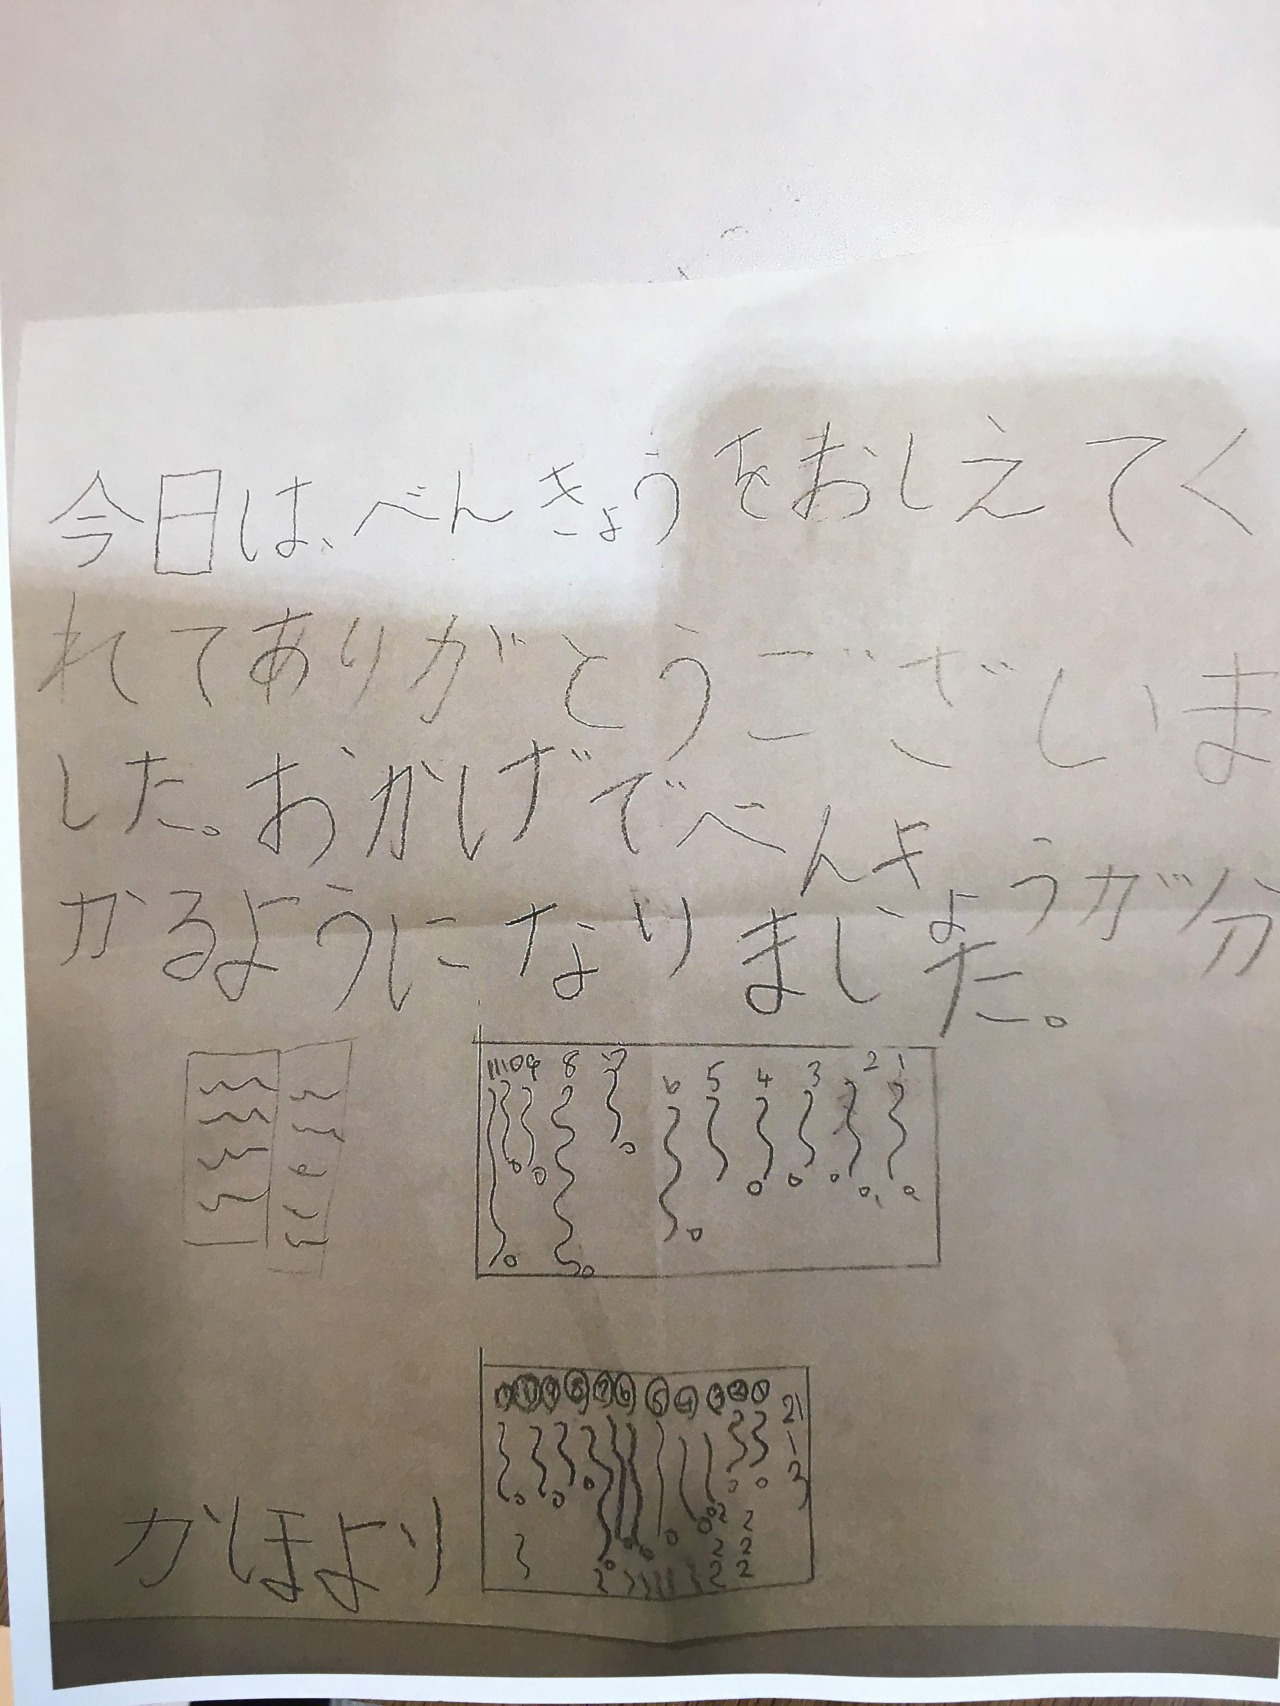 今日は、べんきょうをおしえてく
れてありがとうございま
した。おかげでべんきょうが分
かるようになりました。
11 10 9 8 7 6 5 4 3 2 1
かほより